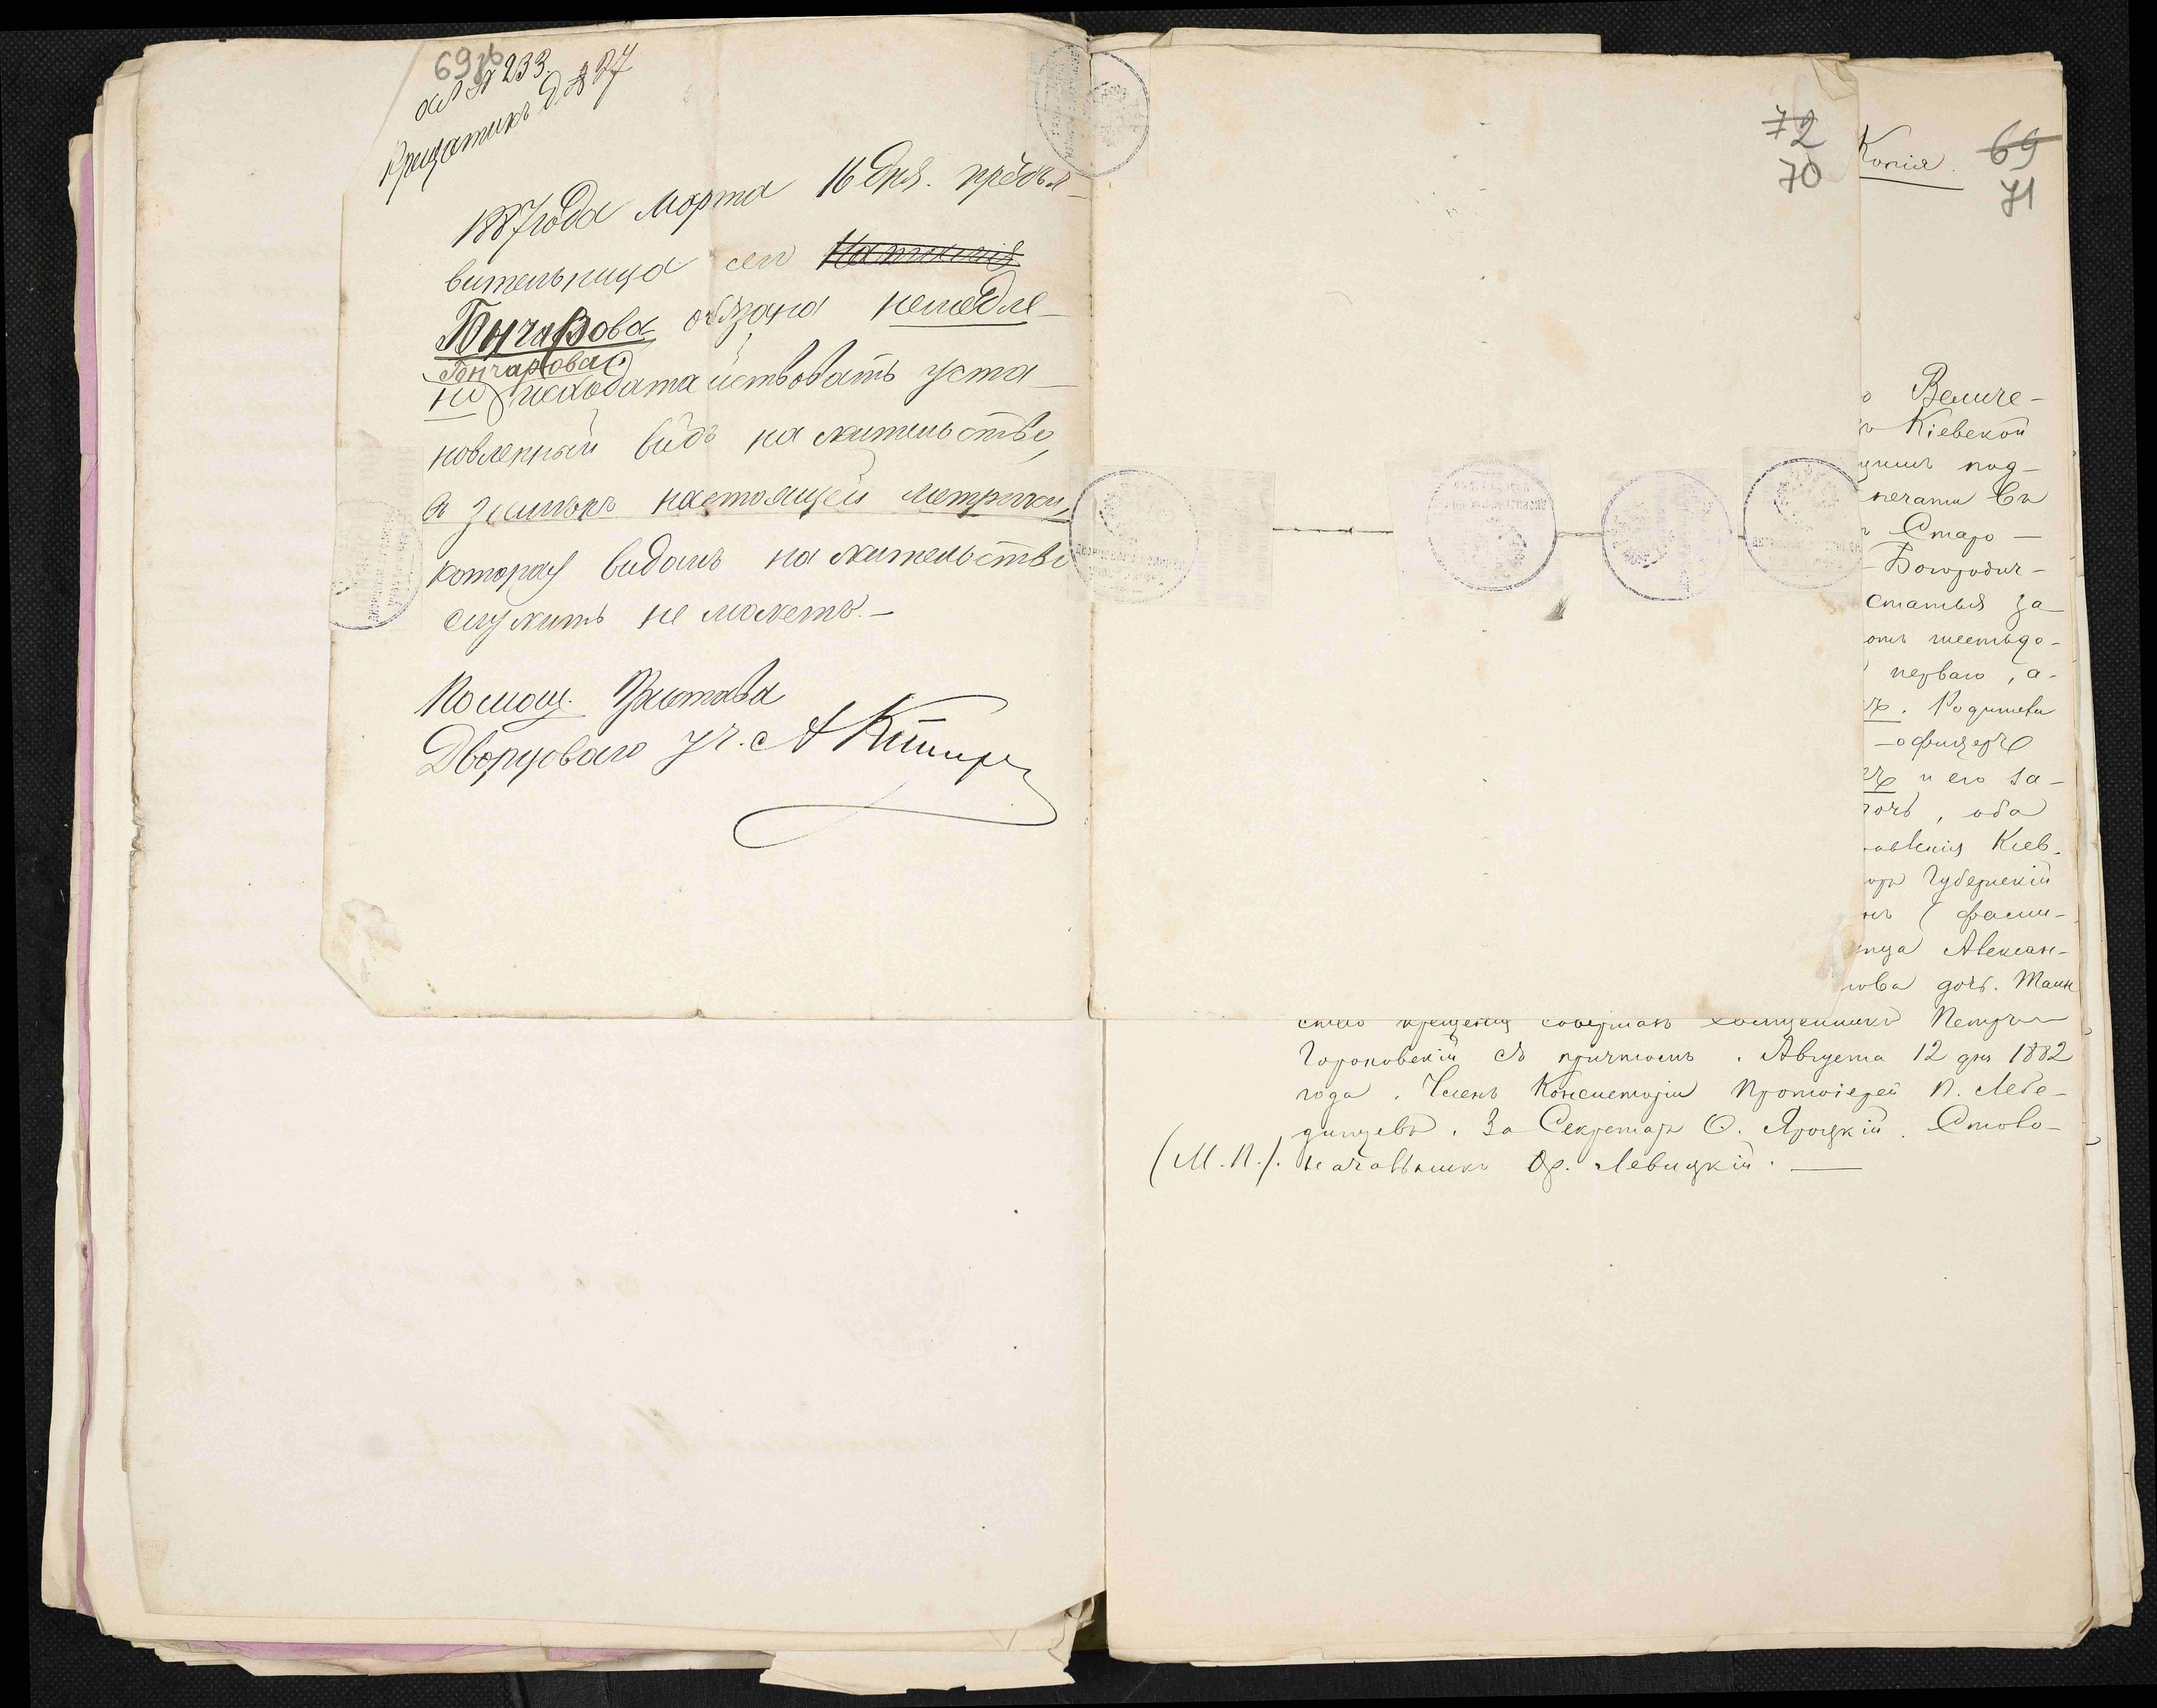 69об
№ 233.
Крещатикъ д. № 27
1887 года Марта 16 дня. предъя-
вительница сего
Гончарова обязана немедле-
Гончарова
но исходатайствовать уста-
новленный видъ на жительство,
въ замѣнъ настоящей метрики,
которая видомъ на жительство
служить не можетъ.-
Помощ. Пристава
Дворцоваго уч.
72
70
Копія. 69
71
Величе-
Кіевской
под-
печати въ
Старо-
-Богородич-
статья за
шестьде-
перваго, а-
Родители
-офицеръ
и его за-
оба
Кіев.
Губернскій
(фами-
Алексан-
дочь. Таин
ство крещенія совершалъ Священникъ Петръ
Гороновскій съ причтомъ. Августа 12 дня 1882
года. Членъ Консисторіи Протоіерей П. Лебе-
динцевъ. За Секретаря О. Яроцкій. Столо-
(М.П.). начальникъ Ор. Левицкій.